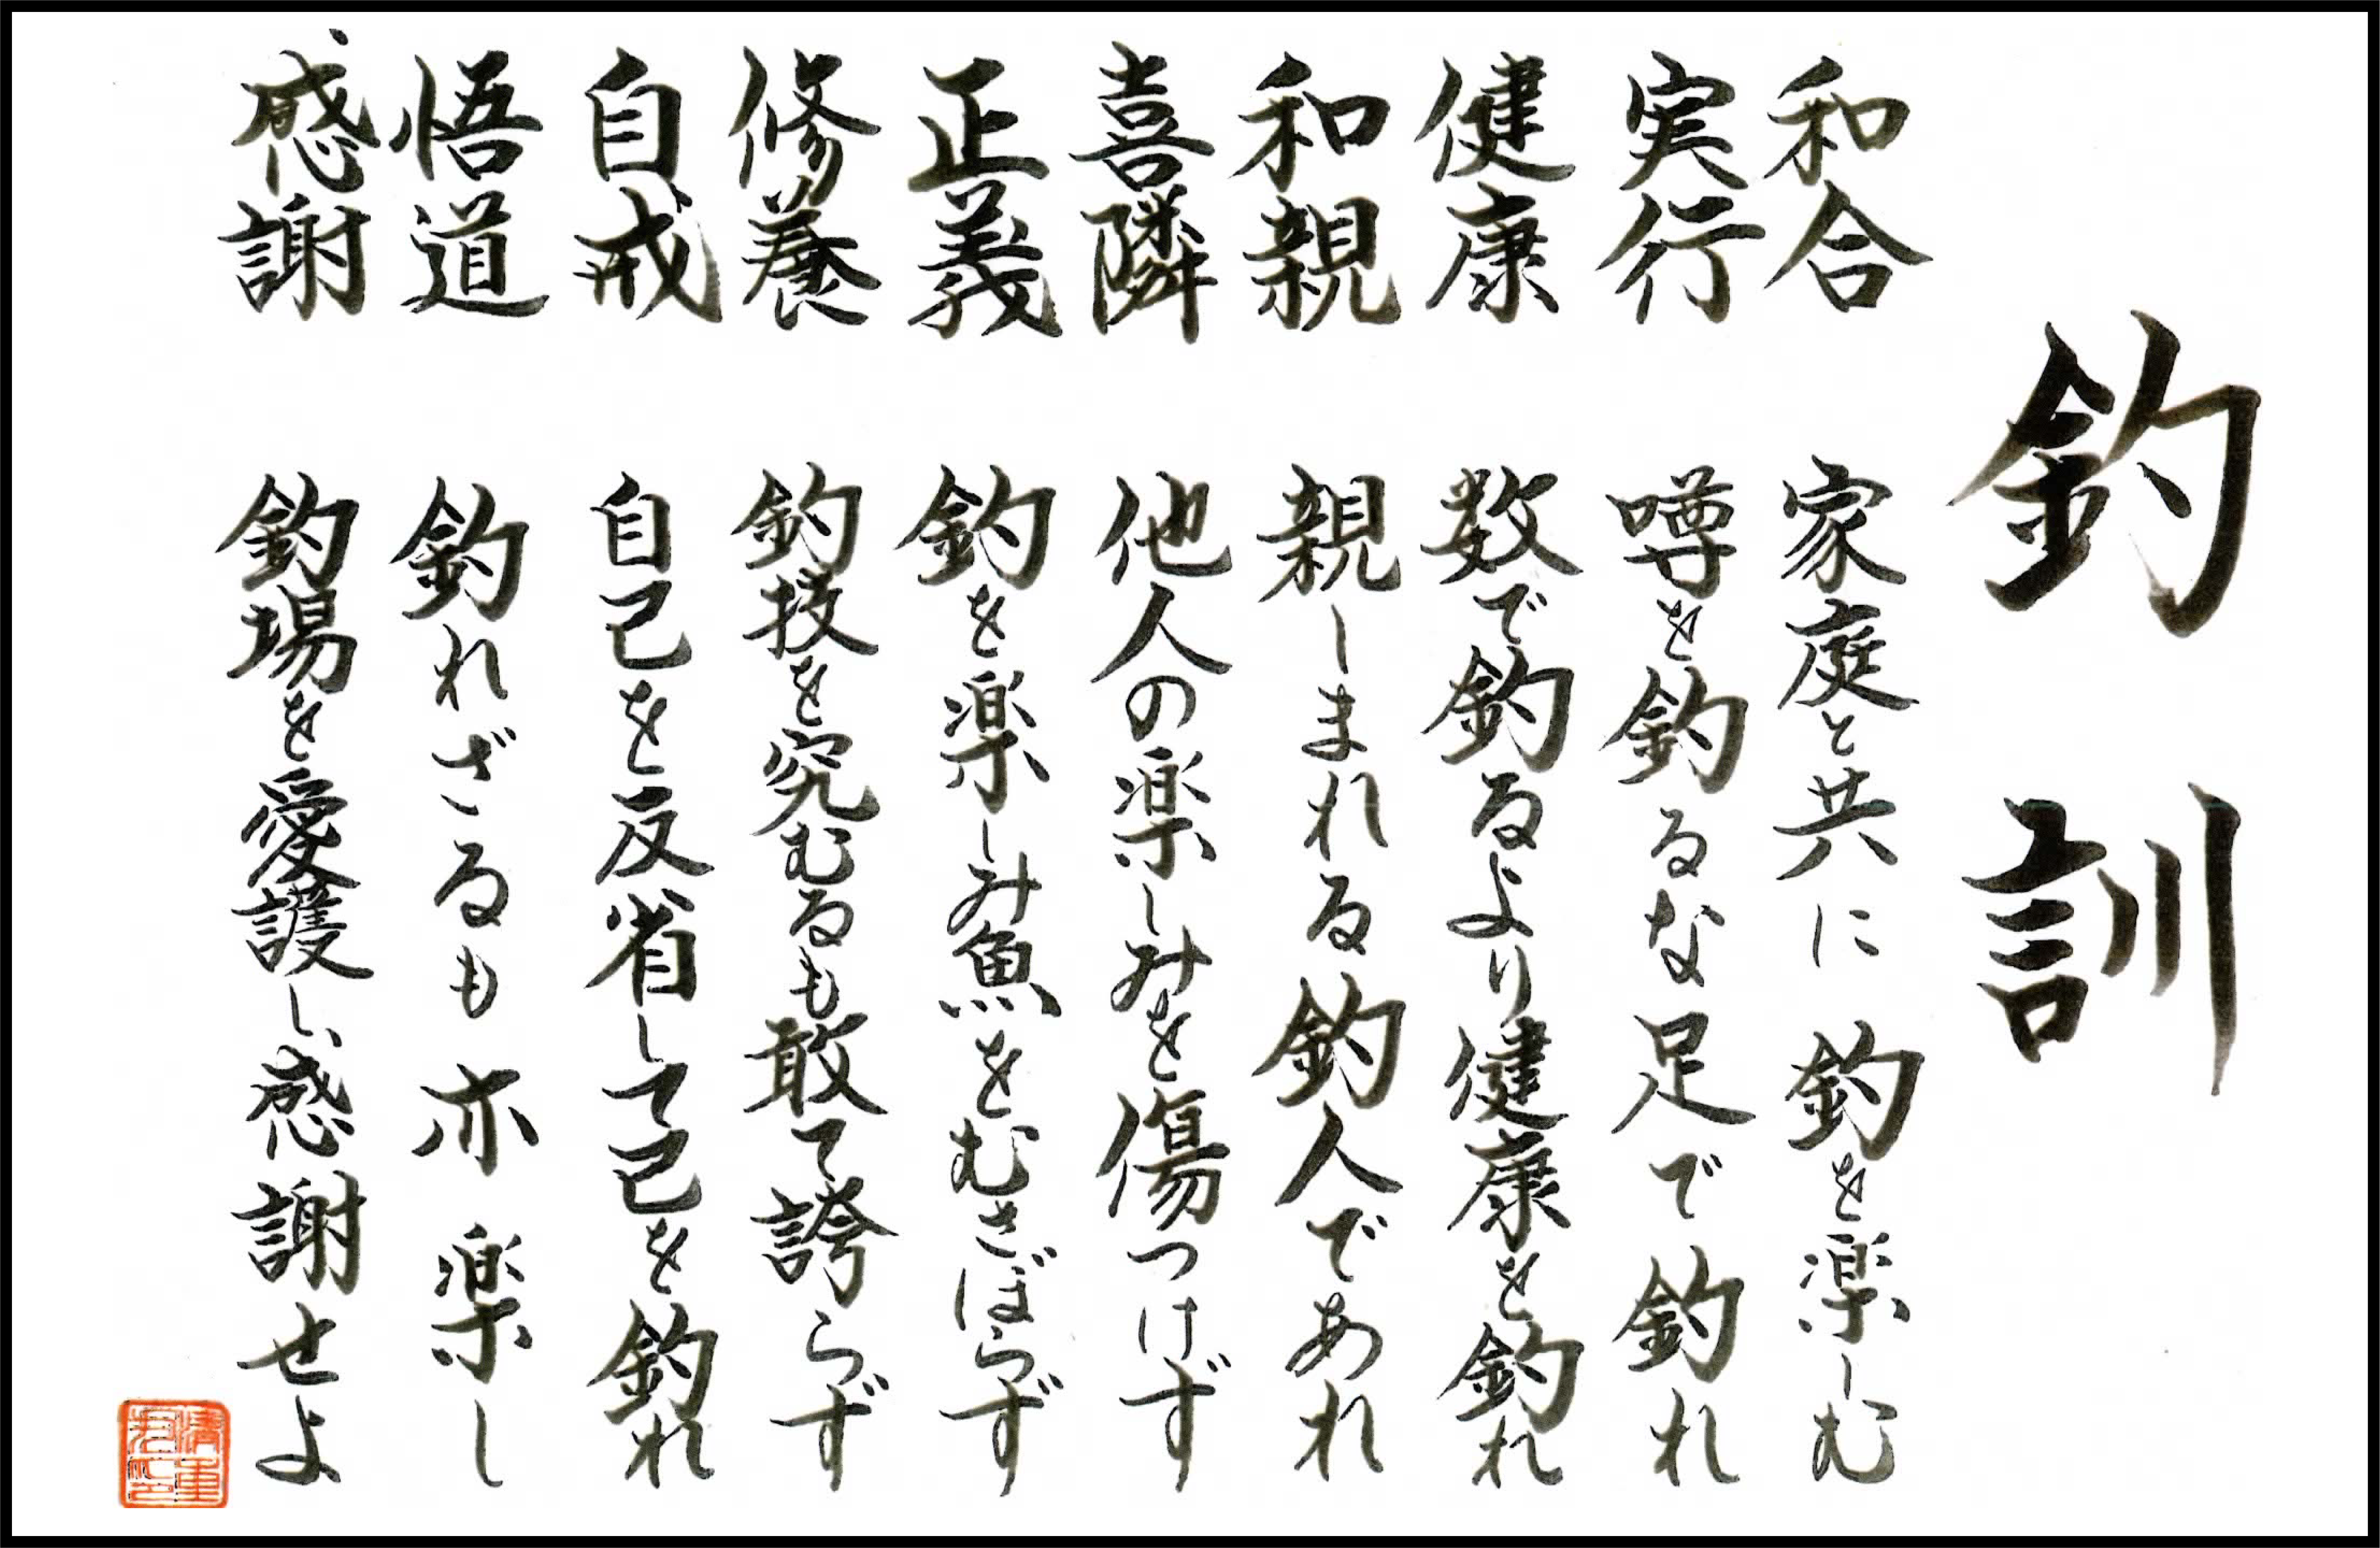 釣訓
和合 家庭と共に釣を楽しむ
実行 噂を釣るな足で釣れ
健康 数で釣るより健康を釣れ
和親 親しまれる釣人であれ
喜隣 他人の楽しみを傷つけず
正義 釣を楽しみ魚をむさぼらず
修養 釣技を究むるも敢て誇らず
自戒 自己を反省して己を釣れ
悟道 釣れざるも亦楽し
感謝 釣場を愛護し感謝せよ